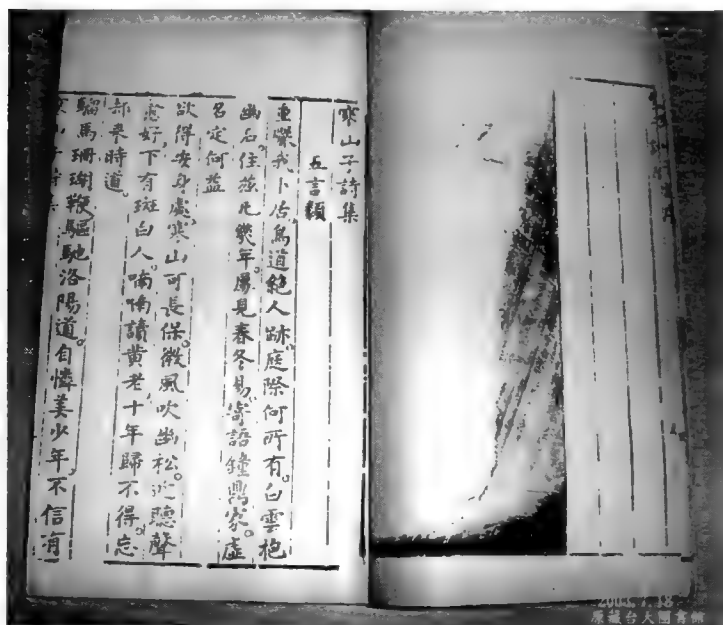 寒山子詩集
五言類
重巖我卜居鳥道絕人跡。庭際何所有。白雲抱
幽石。住茲凡幾年屢見春冬易。寄語鐘鼎家。虛
名定何益
欲得安身處。寒山可長保。微風吹幽松。近聽聲
愈好。下有斑白人。喃喃讀黃老。十年歸不得。忘
却來時道。
騮馬珊瑚鞭驅馳洛陽道。自憐美少年。不信有
原藏台大圖書館